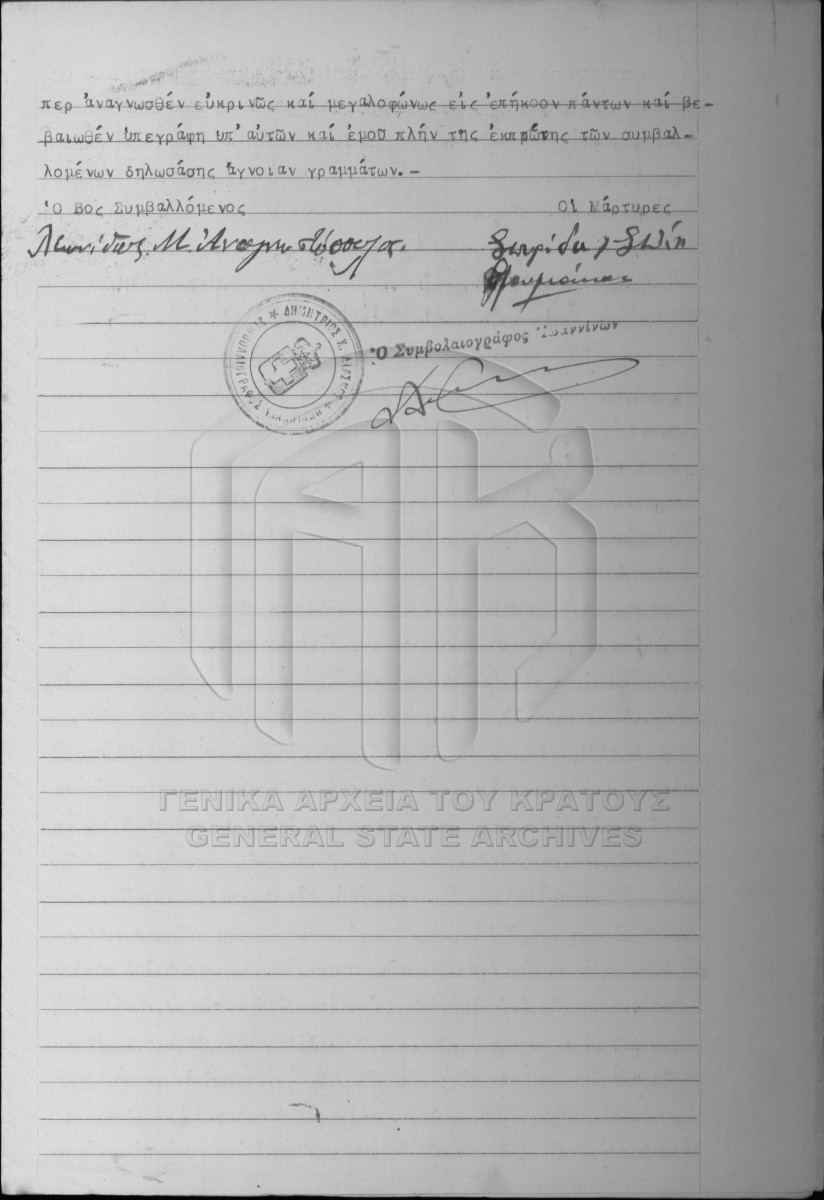 περ ἀναγνωσθέν εὐκρινῶς καί μεγαλοφώνως εἰς ἐπήκοον πάντων καί βε-
βαιωθέν ὑπεγράφη ὑπ' αὐτῶν καί ἐμοῦ πλήν τῆς ἐκπρώτης τῶν συμβαλ-
λομένων δηλωσάσης ἄγνοιαν γραμμάτων.-
Ὁ Βος Συμβαλλόμενος Οἱ Μάρτυρες
Λεωνίδας Μ. Ἀναγνωστόπουλος
Ὁ Συμβολαιογράφος
ΔΗΜΗΤΡΙΟΣ Χ.
ΓΕΝΙΚΑ ΑΡΧΕΙΑ ΤΟΥ ΚΡΑΤΟΥΣ
GENERAL STATE ARCHIVES